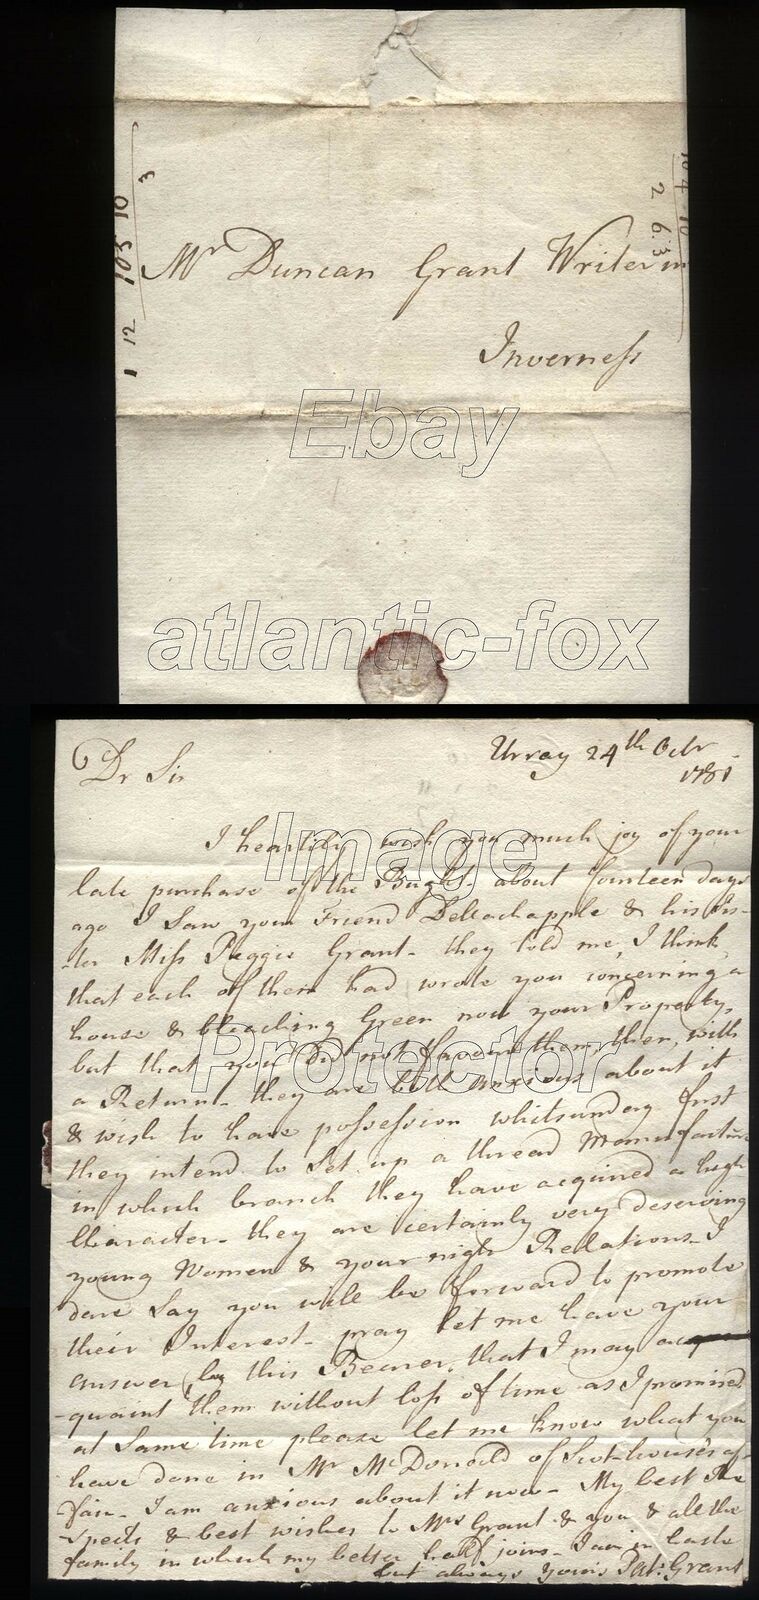 Mr Duncan Grant Writer in
Inverness
1 12 103 10
3
104 10
2 6.3
Ebay
atlantic-fox
Image
Protector
Urray 24th Octr
1781
Dr Sir
I heartily wish you much joy of your
late purchase of the Bught. about fourteen days
ago I Saw your Friend & his Sis-
-ter Miss Peggie Grant - they told me, I think
that each of them had wrote you concerning a
house & bleaching Green now your Property,
but that you did not favour them, then, with
a Return - they are both anxious about it
& wish to have possession whitsunday first
they intend to Set up a thread Manufacture
in which branch they have acquired a high
Character - they are certainly very deserving
young Women & your nigh Relations - I
dare Say you will be forward to promote
their Interest - pray let me have your
answer by this Bearer, that I may ac
-quaint them without loss of time as I promised
at Same time please let me know what you
have done in Mr McDonald of Scothouse's af-
fair - I am anxious about it now - My best Re
-spects & best wishes to Mrs Grant & you & all the
family in which my better half joins - I am in haste
but always yours Pat: Grant